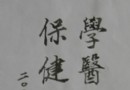 學醫
保健
二〇